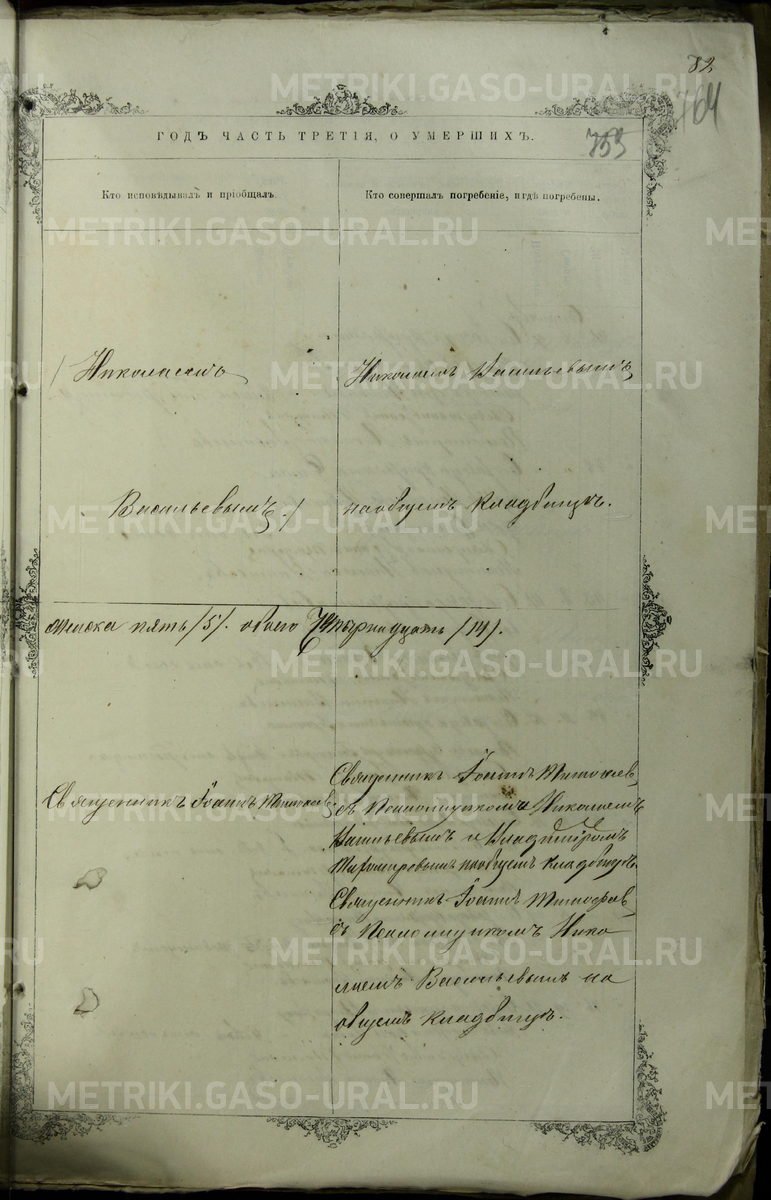 82
764
ГОДЪ ЧАСТЬ ТРЕТІЯ, О УМЕРШИХЪ.
753
Кто исповѣдывалъ и пріобщалъ.
Кто совершалъ погребеніе, и гдѣ погребены.
/ Николаемъ
Николаемъ Васильевымъ
Васильевымъ /
на общемъ кладбищѣ.
женска пять /5/. обоего Четырнадцать /14/.
Священникъ Іоаннъ
Священникъ Іоаннъ
съ Псаломщикомъ Николаемъ
Васильевымъ и
на общемъ кладбищѣ.
Священникъ Іоаннъ
съ Псаломщикомъ Нико
лаемъ Васильевымъ на
общемъ кладбищѣ.
METRIKI.GASO-URAL.RU